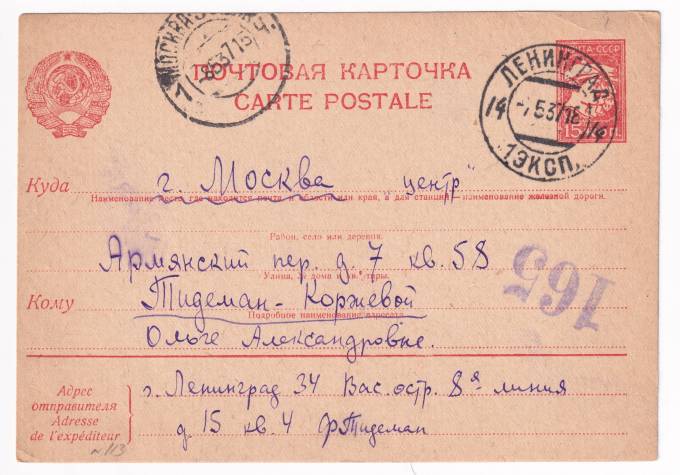 МОСКВА
-8537
ПОЧТОВАЯ КАРТОЧКА
CARTE POSTALE
ПОЧТА СССР
15
ЛЕНИНГРАД
14 -7.537 14
1 ЭКСП.
Куда г. Москва центр
Наименование места, где находится почта, и области или края, а для станций наименование железной дороги.
Район, село или деревня.
Армянский пер. д. 7 кв. 58
Улица, № дома и кв-тиры.
Кому Тидеман-Коржевой
Подробное наименование адресата
Ольге Александровне.
165
Адрес
отправителя
Adresse
de l'expéditeur
г. Ленинград 34 Вас. остр. 8я линия
д. 15 кв. 4 Ф Тидеман
№ 113